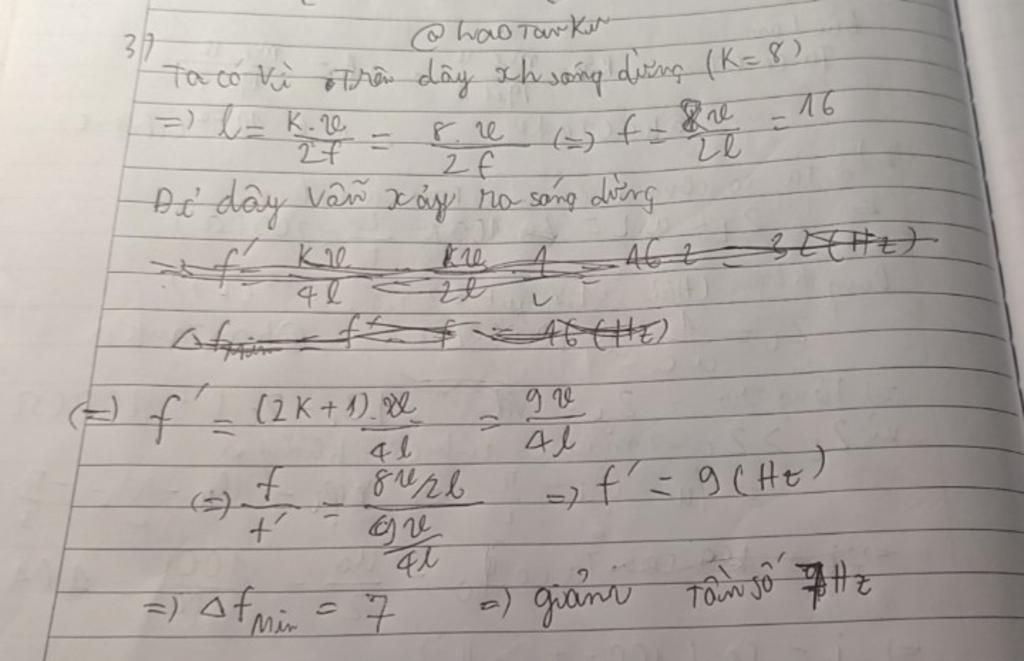 @haoTanKn
37
Ta có vì trên dây xh sóng dừng (K=8)
=) l = K.v/2f = 8.v/2f (=) f = 8v/2l = 16
Để dây vẫn xảy ra sóng dừng
=) f' = Kv/4l = Kv/2l 1/2 = 16.2 = 32 (Hz)
Δfmin = f' - f = 16 (Hz)
(=) f' = (2K+1).v/4l = 9v/4l
(=) f/f' = 8v/2l / 9v/4l =) f' = 9 (Hz)
=) Δf Min = 7 =) giảm tần số 7Hz